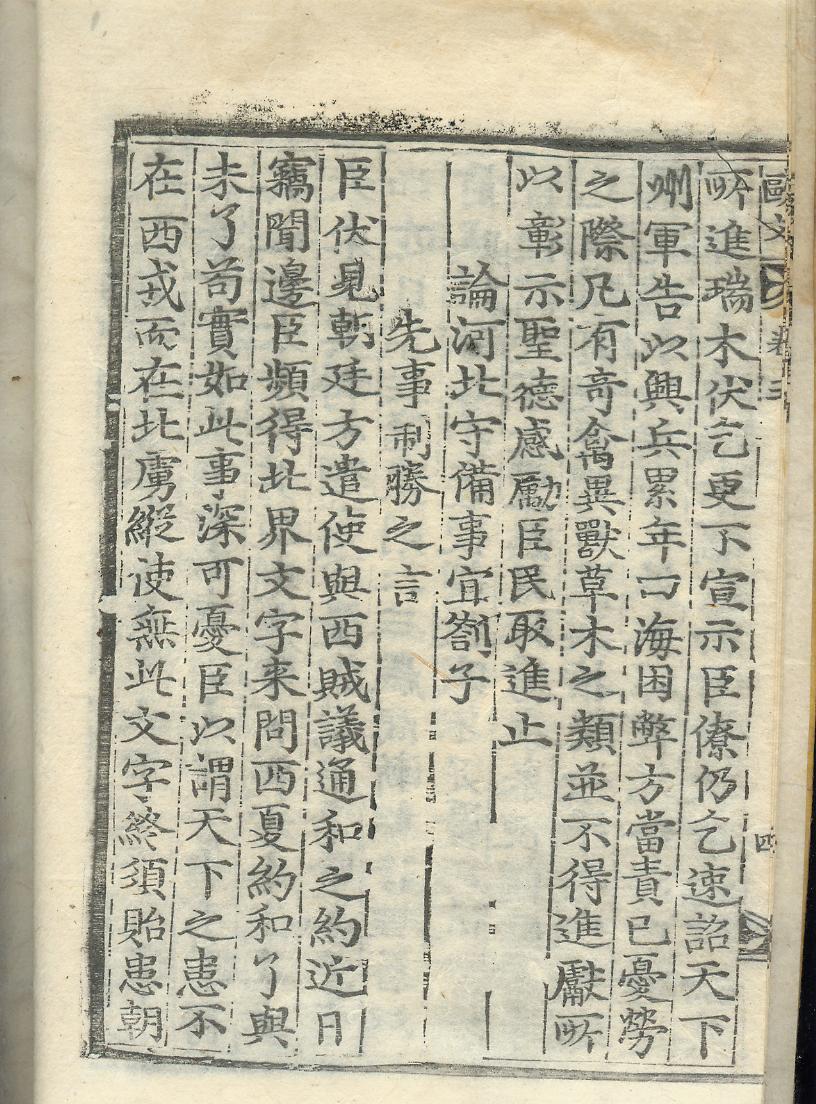 歐文 卷三 四
所進瑞木伏乞更不宣示臣僚仍乞速詔天下
州軍告以興兵累年四海困弊方當責已憂勞
之際凡有奇禽異獸草木之類並不得進獻所
以彰示聖德感勵臣民取進止
論河北守備事宜劄子
先事制勝之言
臣伏見朝廷方遣使與西賊議通和之約近日
竊聞邊臣頻得北界文字来問西夏約和了與
未了苟實如此事深可憂臣以謂天下之患不
在西戎而在北虜縱使無此文字終須貽患朝